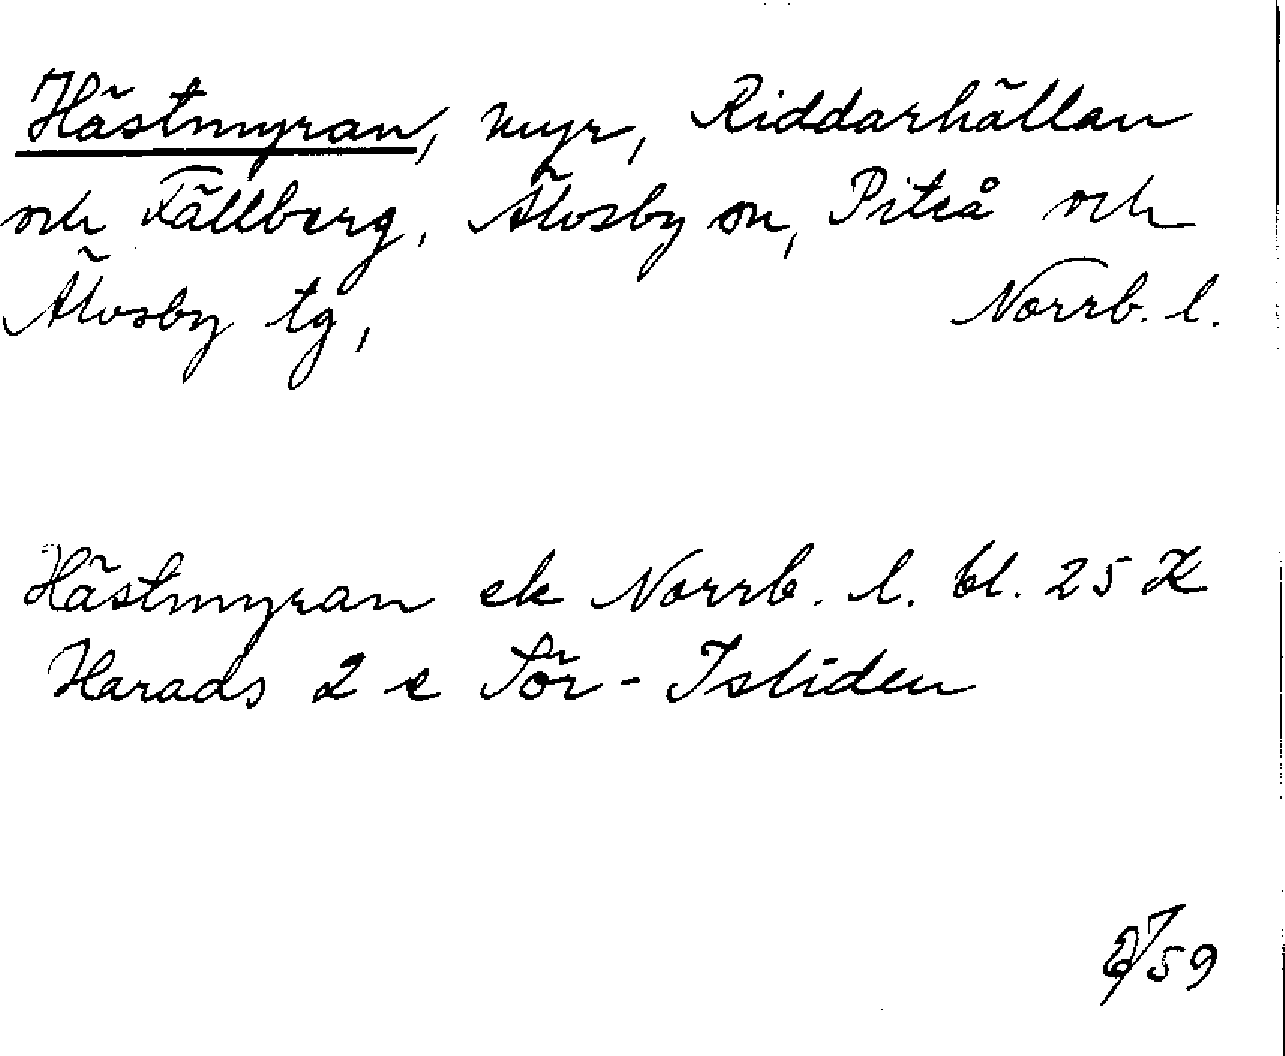 Hästmyran, myr, Riddarhällan
och Fällberg, Älvsby sn, Piteå och
Älvsby tg, Norrb. l.
Hästmyran ek Norrb. l. bl. 25 K
Harads 2 e Sör-Isliden
59